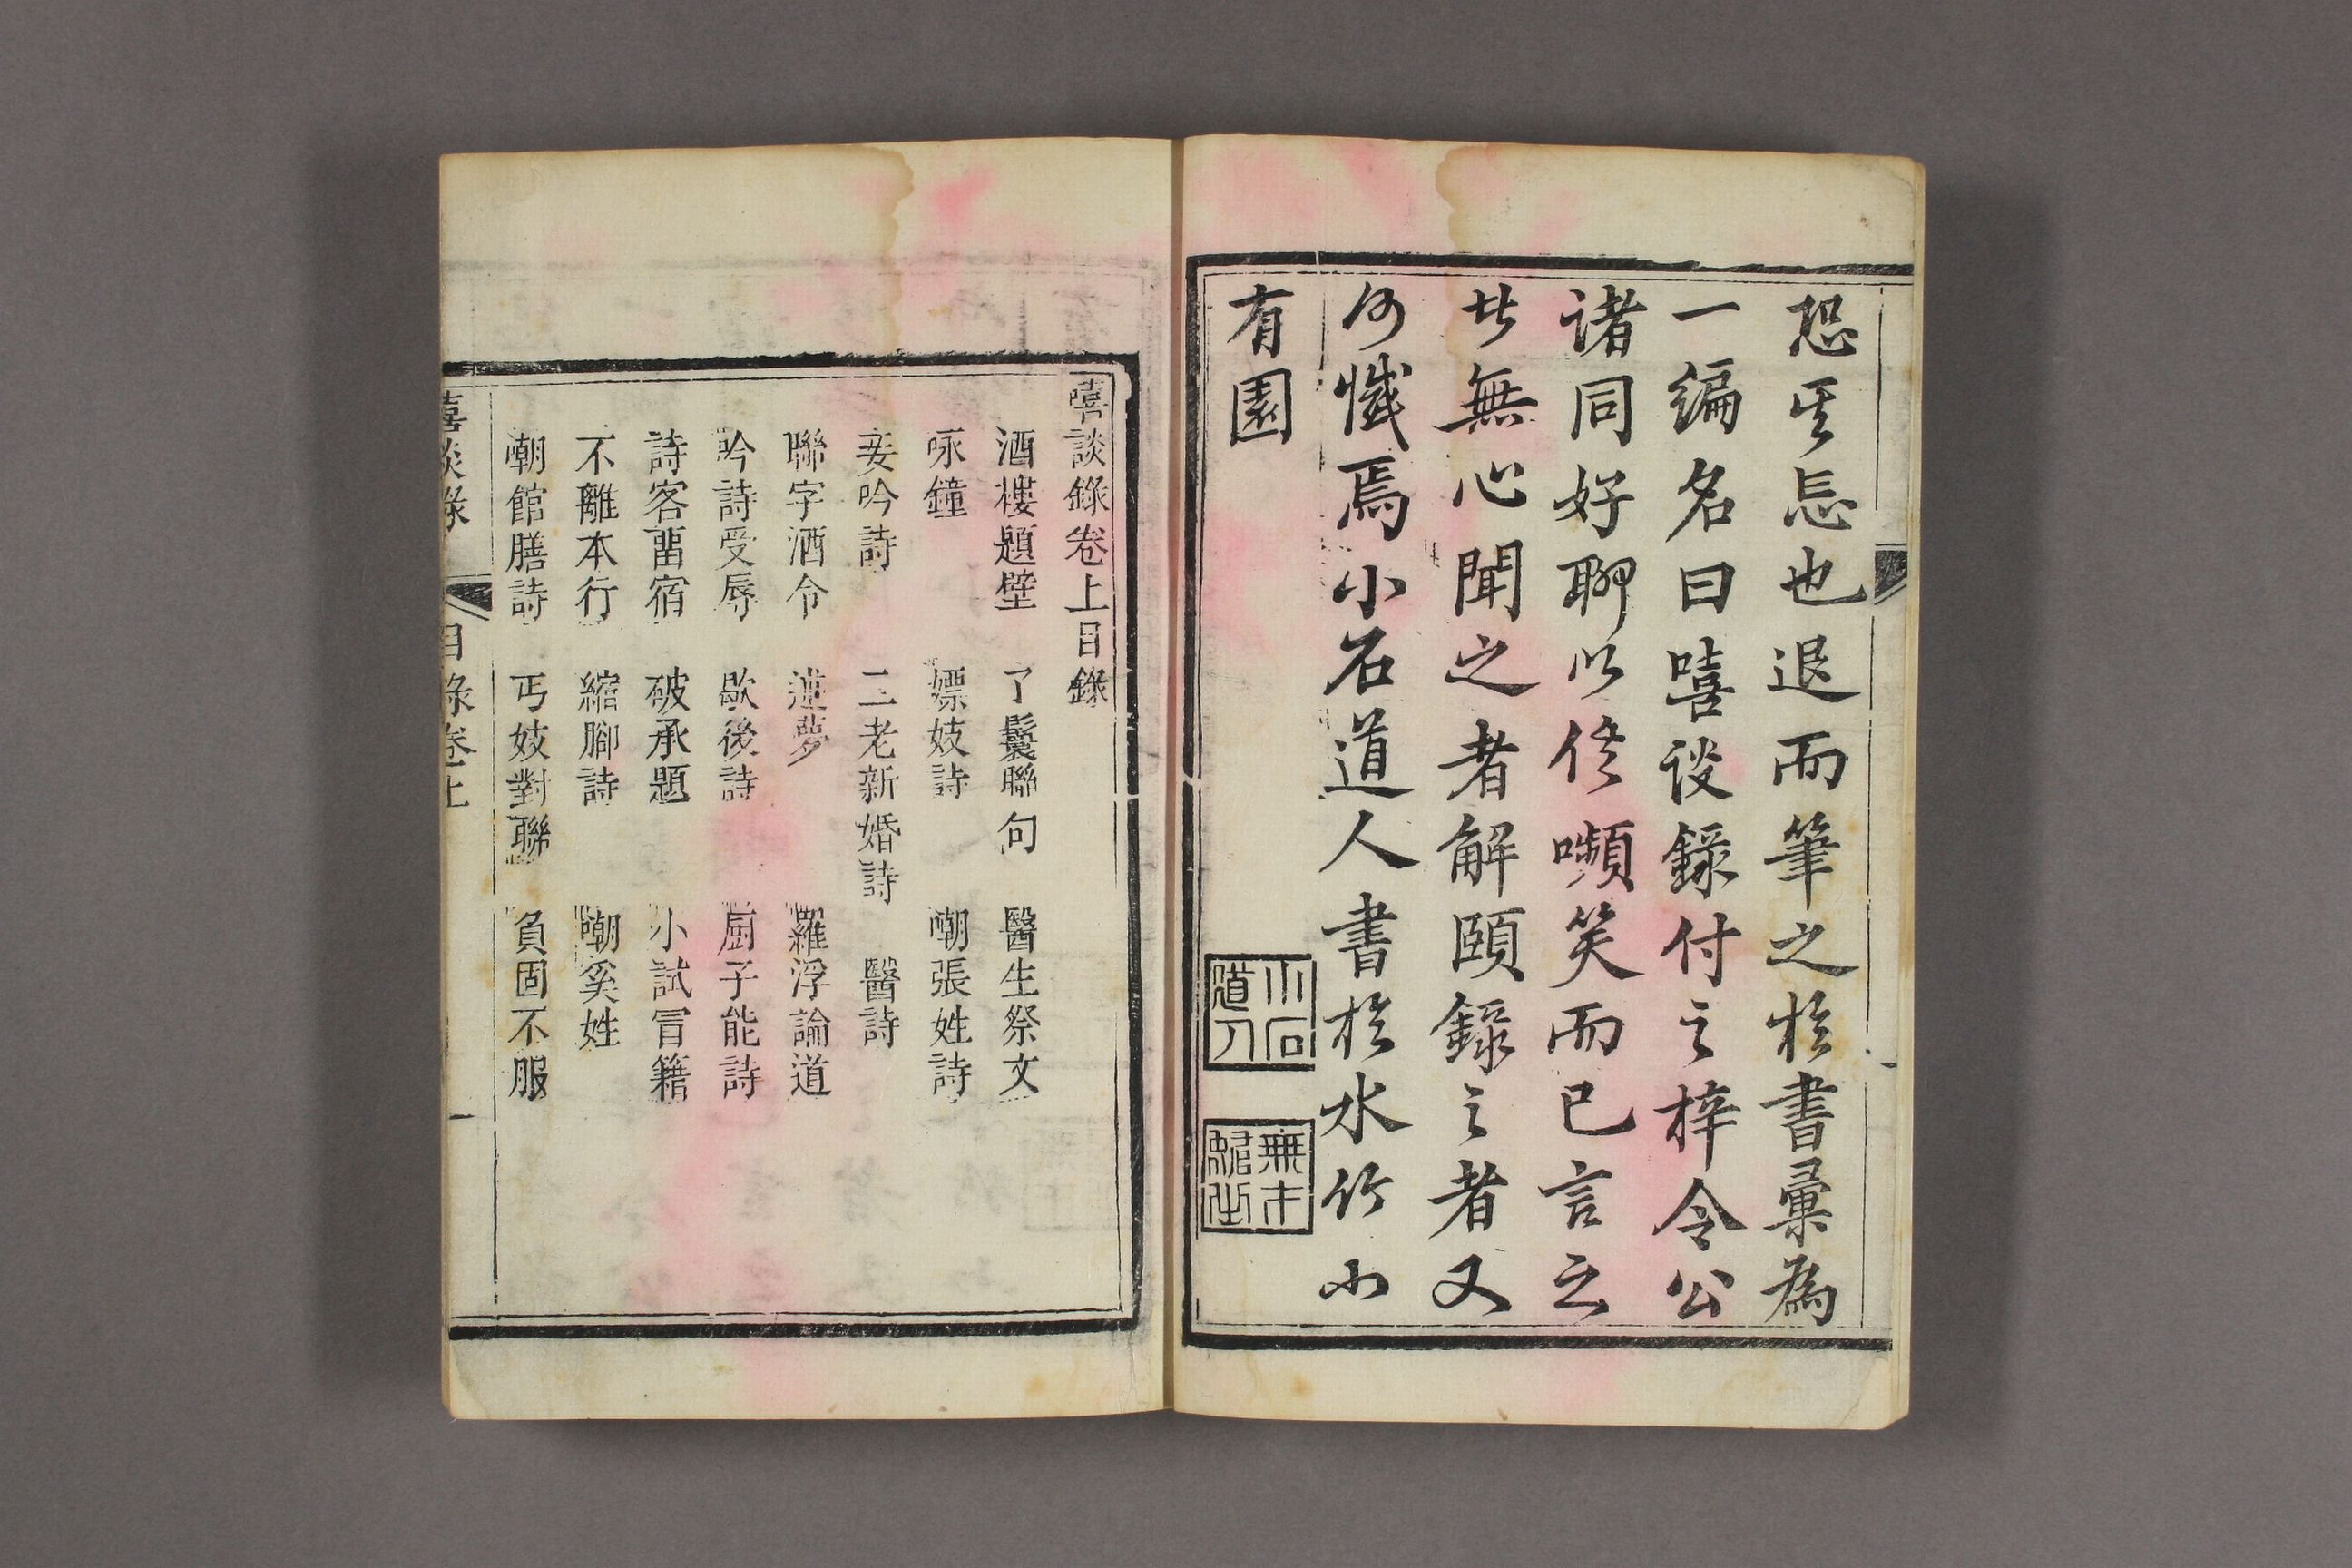 恐其忘也退而筆之於書彙為
一編名曰嘻談錄付之梓令公
諸同好聊以佐嚬笑而已言之
者無心聞之者解頤錄之者又
何懺焉小石道人書於水竹小
有園
小石道人
嘻談錄卷上目錄
酒樓題壁 了鬟聯句 醫生祭文
咏鐘 嫖妓詩 嘲張姓詩
妾吟詩 二老新婚詩 醫詩
聯字酒令 蓮夢 羅浮論道
吟詩受辱 歇後詩 廚子能詩
詩客畱宿 破承題 小試冒籍
不離本行 縮腳詩 嘲奚姓
嘲館膳詩 丐妓對聯 負固不服
嘻談錄 目錄卷上 一